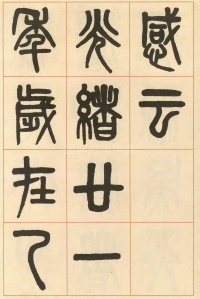 感云
光緒廿一
年歲在乙